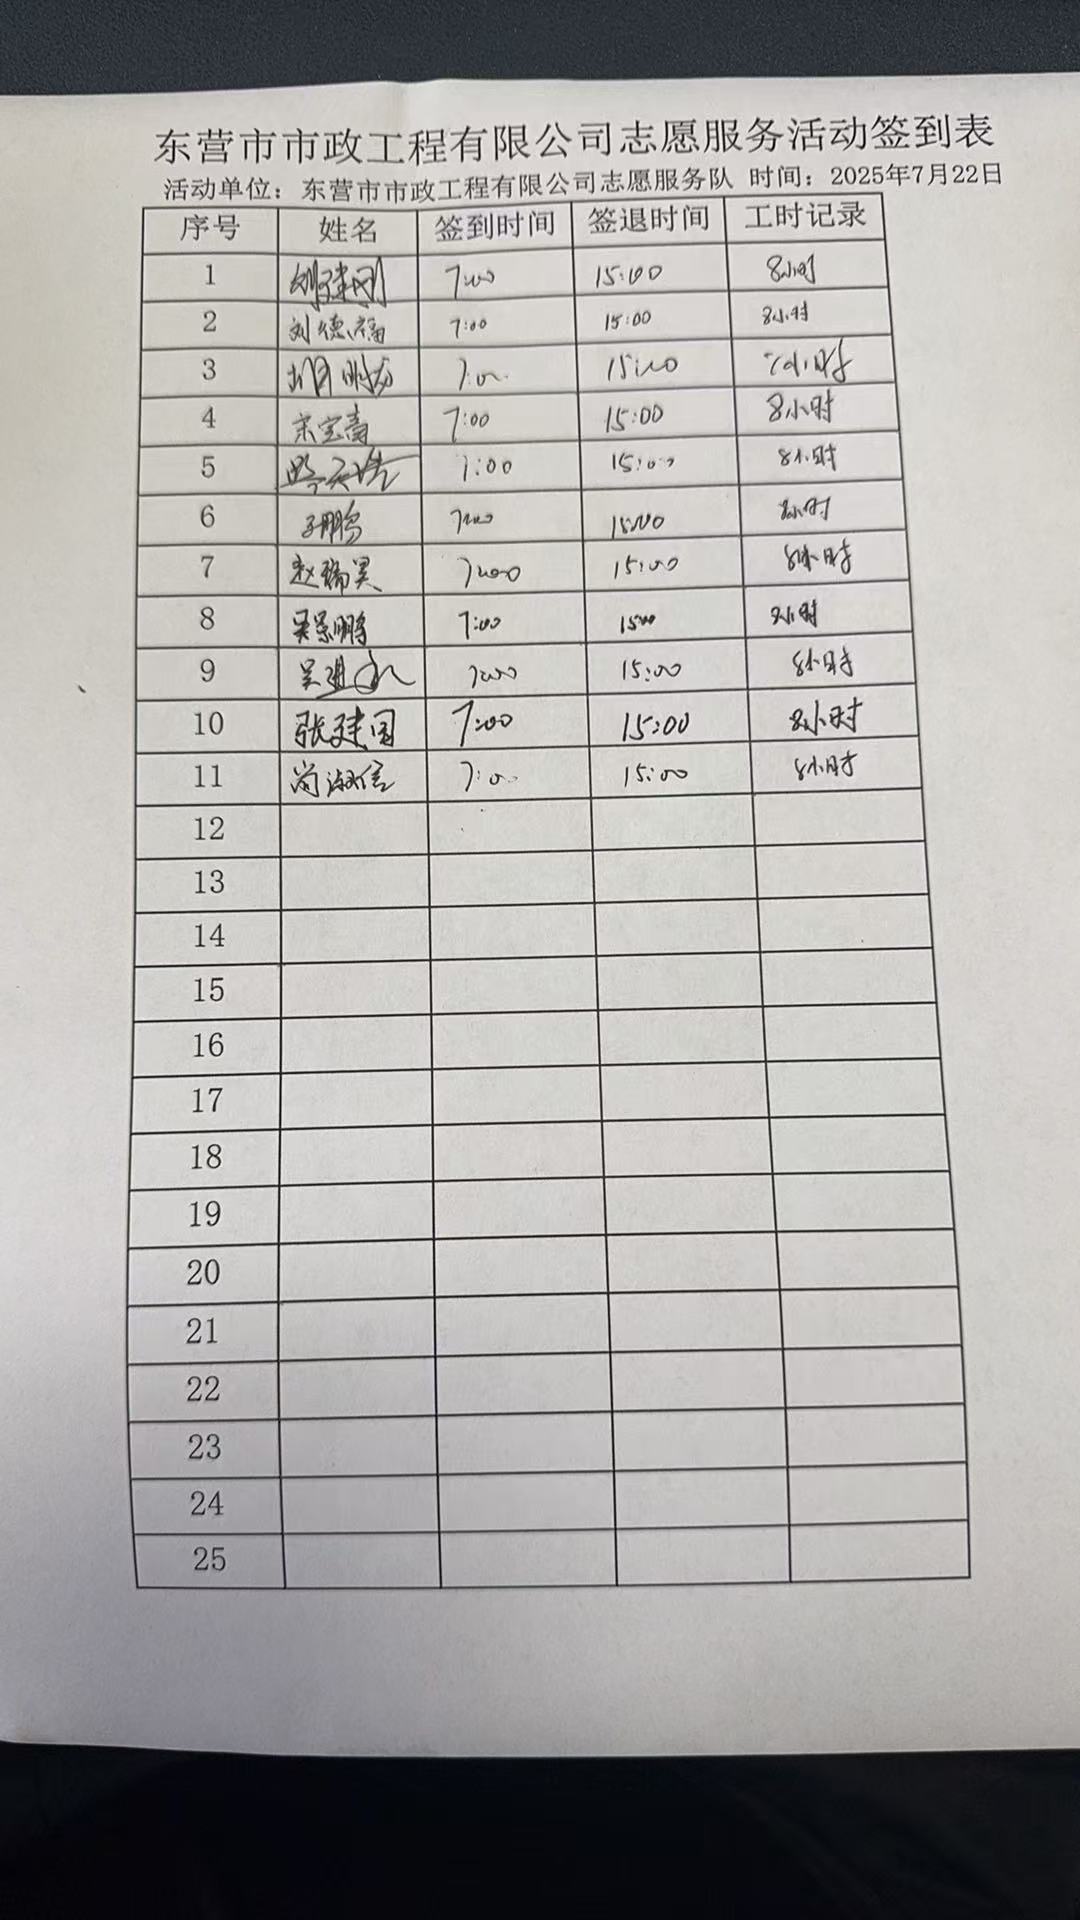 东营市市政工程有限公司志愿服务活动签到表
活动单位：东营市市政工程有限公司志愿服务队 时间：2025年7月22日
序号 姓名 签到时间 签退时间 工时记录
1 7:00 15:00 8小时
2 刘德福 7:00 15:00 8小时
3 7:00 15:00 小时
4 宋宝 7:00 15:00 8小时
5 7:00 15:00 8小时
6 鹏 7:00 15:00 8小时
7 赵瑞昊 7:00 15:00 8小时
8 吴景鹏 7:00 15:00 8小时
9 吴进 7:00 15:00 8小时
10 张建国 7:00 15:00 8小时
11 尚淑信 7:00 15:00 8小时
12
13
14
15
16
17
18
19
20
21
22
23
24
25